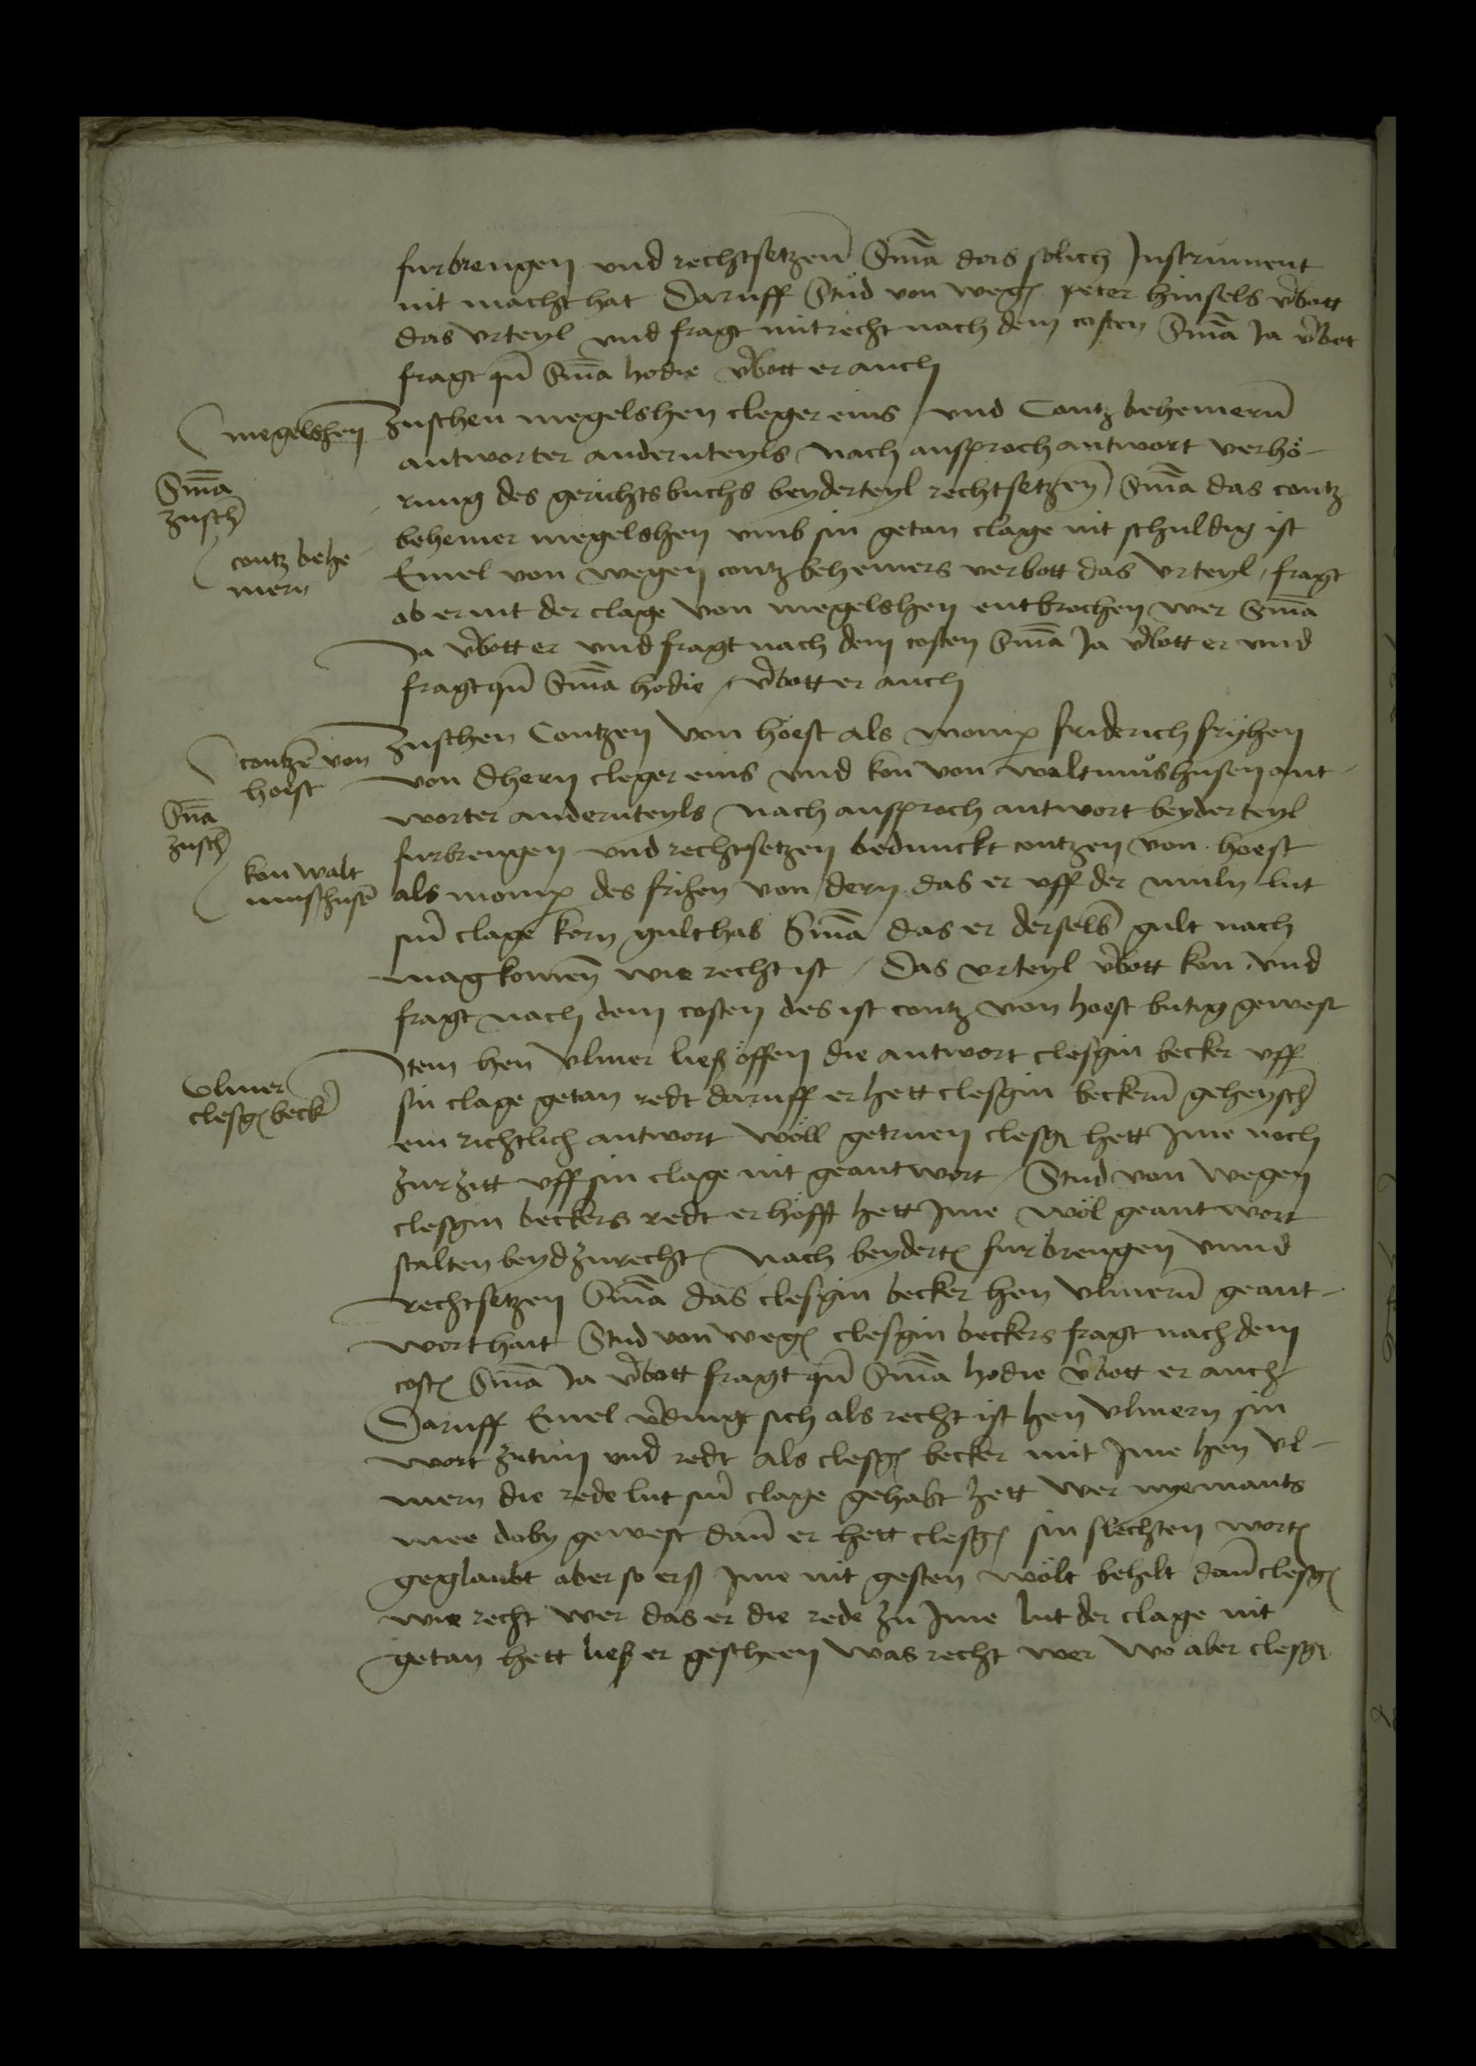 furbrengen vnd rechtsetzen Sma das solich Instrument
nit macht hat Daruff Stud von wegen peter hinsels v̓bott
das vrteyl vnd fragt mit recht nach dem costen Sma Ja v̓bot
fragt qn̄ Sma hodie v̓bott er auch
megelshen
Zuschen megelshen cleger eins / vnd Contz behemern̄
antworter andernteyls Nach ansproch antwort verhö-
Sma
rung des gerichtsbuchs beyderteyl rechtsetzen̄ Sma das contz
zusch̄
behemer megelshen vmb sin getan clage nit schuldig ist
contz behe
mern
Emel von wegen contz behemers verbott das vrteyl / fragt
ab er nit der clage von megelshen entbrochen wer Sma
Ja v̓bott er vnd fragt nach dem costen Sma Ja v̓bott er vnd
fragt qn̄ Sma hodie / v̓bott er auch
contzē von
hoest
Zuschen Contzen von höest als momp friderich frÿhen
von Dhern cleger eins vnd kon von waltmushusen ant-
Sma
worter andernteyls Nach ansproch antwort beyderteyl
zusch̄
furbrengen vnd rechtsetzen beduncket contzen von hoest
kon walt
muschusē
als momp des frihen von dern das er vff der muln lut
sin̄ clage korn gulthab Sma das er derselb̄ gult nach
mag komen̄ wie recht ist / Das vrteyl v̓bott kon vnd
fragt nach dem costen des ist contz von hoest butig gewest
vlmer
clesḡ beck̄
Item hen vlmer ließ offen die antwort clesgin becker vff
sin clage getan redt daruff er hett clesgin beckern̄ geheysch̄
ein richtlich antwort woll getruen clesḡ hett Ime noch
zur zitt vff sin clage nit geantwort / Stud von wegen
clesgin beckers redt er hofft hett Ime wol geantwort
stalten beyd zurecht Nach beydert̄ furbrengen vnnd
rechtsetzen Sma das clesgin becker hen vlmern̄ geant-
wort hait Stud von weḡ clesgin beckers fragt nach dem
cost̄ Sma Ja v̓bott fragt qn̄ Sma hodie v̓bott er auch
Daruff Emel v̓dingt sich als recht ist hen vlmern sin
wort zutun vnd redt als clesḡ becker mit Ime hen vl-
mern die rede lut sin̄ clage gehabt hett wer nyemants
mee doby gewest dan̄ er hett clesḡ sin slechten wort̄
geglaubt aber so erß Ime nit gesten wolt behilt dan̄ clesḡ
wie recht wer das er die rede zu Ime lut der clage nit
getan hett ließ er gescheen was recht wer wo aber clesḡ